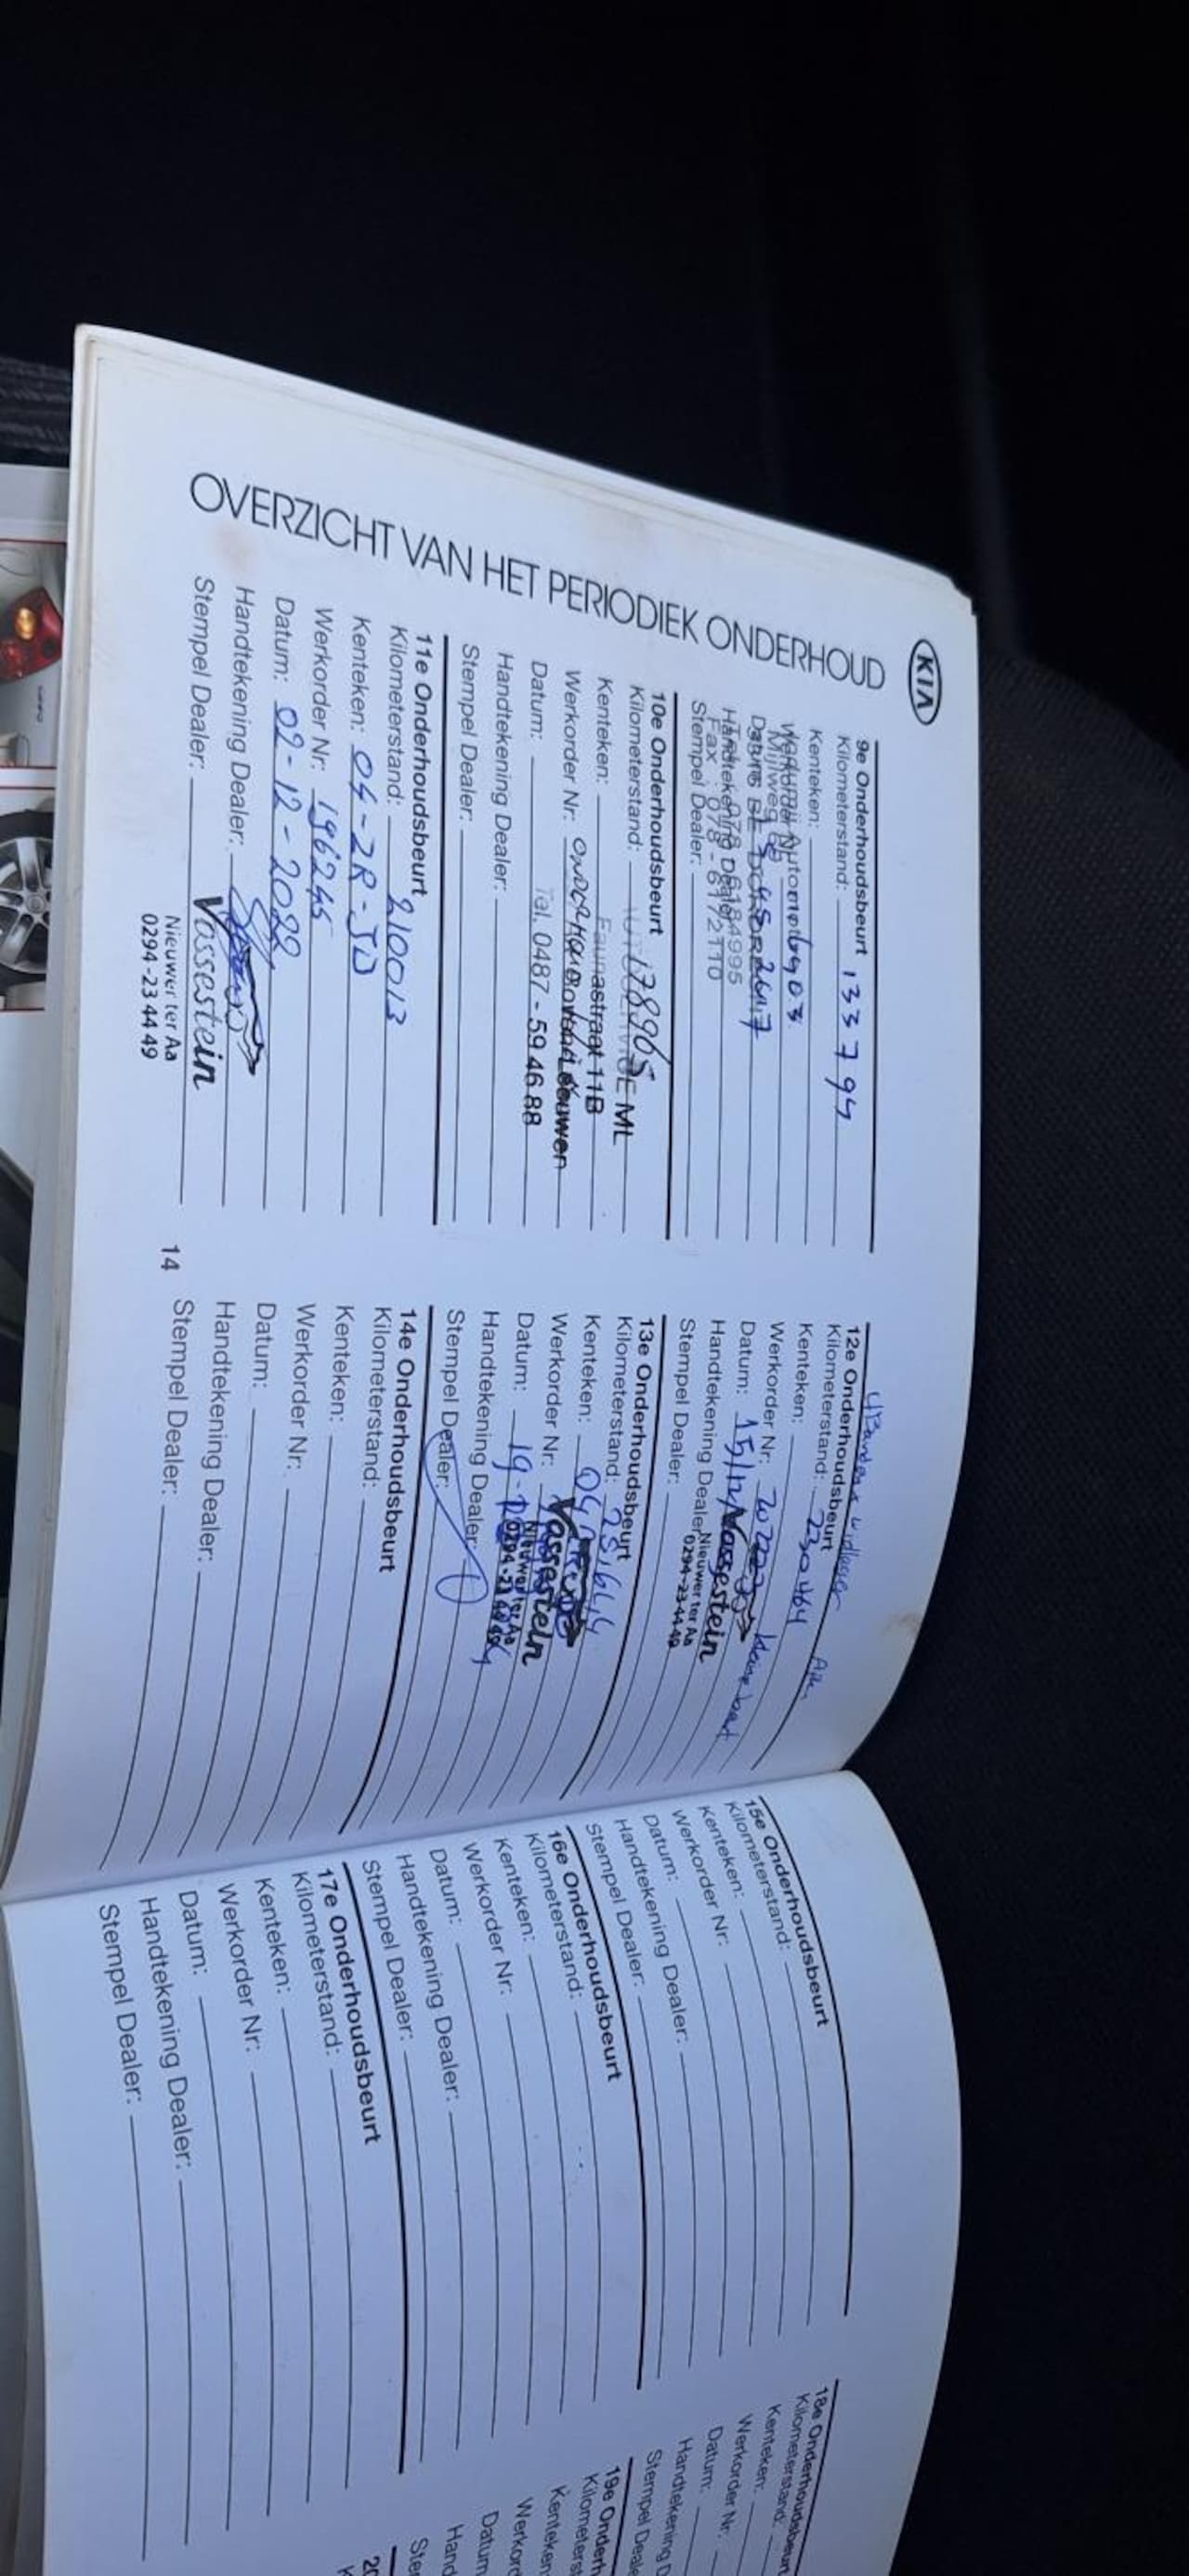 KIA
OVERZICHT VAN HET PERIODIEK ONDERHOUD
9e Onderhoudsbeurt
Kilometerstand: 133794
Kenteken:
Werkorder Nr:
Mijlweg
Datum:
Handtekening Dealer:
Fax 078 - 6172110
Stempel Dealer:
10e Onderhoudsbeurt
Kilometerstand: 178965
ML
Kenteken:
Faunastraat 11B
Werkorder Nr:
Datum:
Tel. 0487 - 59 46 88
Handtekening Dealer:
Stempel Dealer:
11e Onderhoudsbeurt
Kilometerstand: 210013
Kenteken: 04-ZR-JD
Werkorder Nr: 196245
Datum: 02-12-2022
Handtekening Dealer:
Stempel Dealer:
Vassestein
Nieuwer ter Aa
0294-23 44 49
14
12e Onderhoudsbeurt
Kilometerstand: 230464
Kenteken:
Werkorder Nr:
kleine beurt
Datum: 15/12/
Vassestein
Handtekening Dealer:
Nieuwer ter Aa
0294-23 44 49
Stempel Dealer:
13e Onderhoudsbeurt
Kilometerstand: 251644
Kenteken:
Werkorder Nr:
Vassestein
Datum: 19-
Nieuwer ter Aa
0294-23 44 49
Handtekening Dealer:
Stempel Dealer:
14e Onderhoudsbeurt
Kilometerstand:
Kenteken:
Werkorder Nr:
Datum:
Handtekening Dealer:
Stempel Dealer:
15e Onderhoudsbeurt
Kilometerstand:
Kenteken:
Werkorder Nr:
Datum:
Handtekening Dealer:
Stempel Dealer:
16e Onderhoudsbeurt
Kilometerstand:
Kenteken:
Werkorder Nr:
Datum:
Handtekening Dealer:
Stempel Dealer:
17e Onderhoudsbeurt
Kilometerstand:
Kenteken:
Werkorder Nr:
Datum:
Handtekening Dealer:
Stempel Dealer:
18e Onderhoudsbeurt
Kilometerstand:
Kenteken:
Werkorder Nr:
Datum:
Handtekening D
Stempel Deale
19e Onderh
Kilometerst
Kenteken
Werkord
Datum
Hand
Ste
20
K